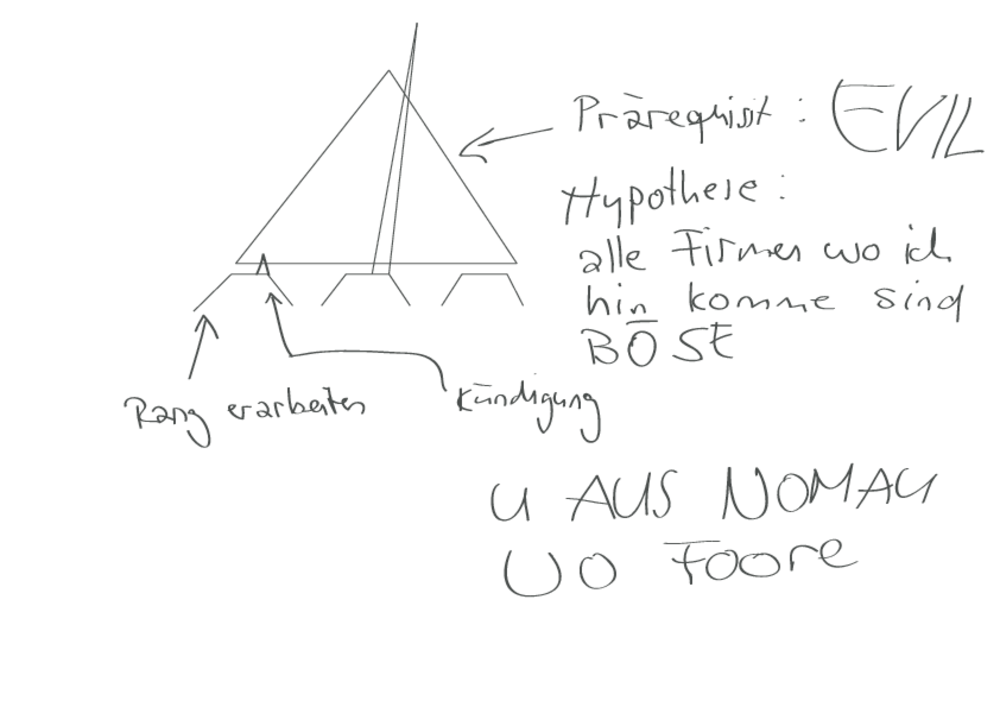 Prärequisit : EVIL
Hypothese :
alle Firmen wo ich
hin komme sind
BÖSE
Rang erarbeiten
Kündigung
U AUS NOMAU
VO Foore